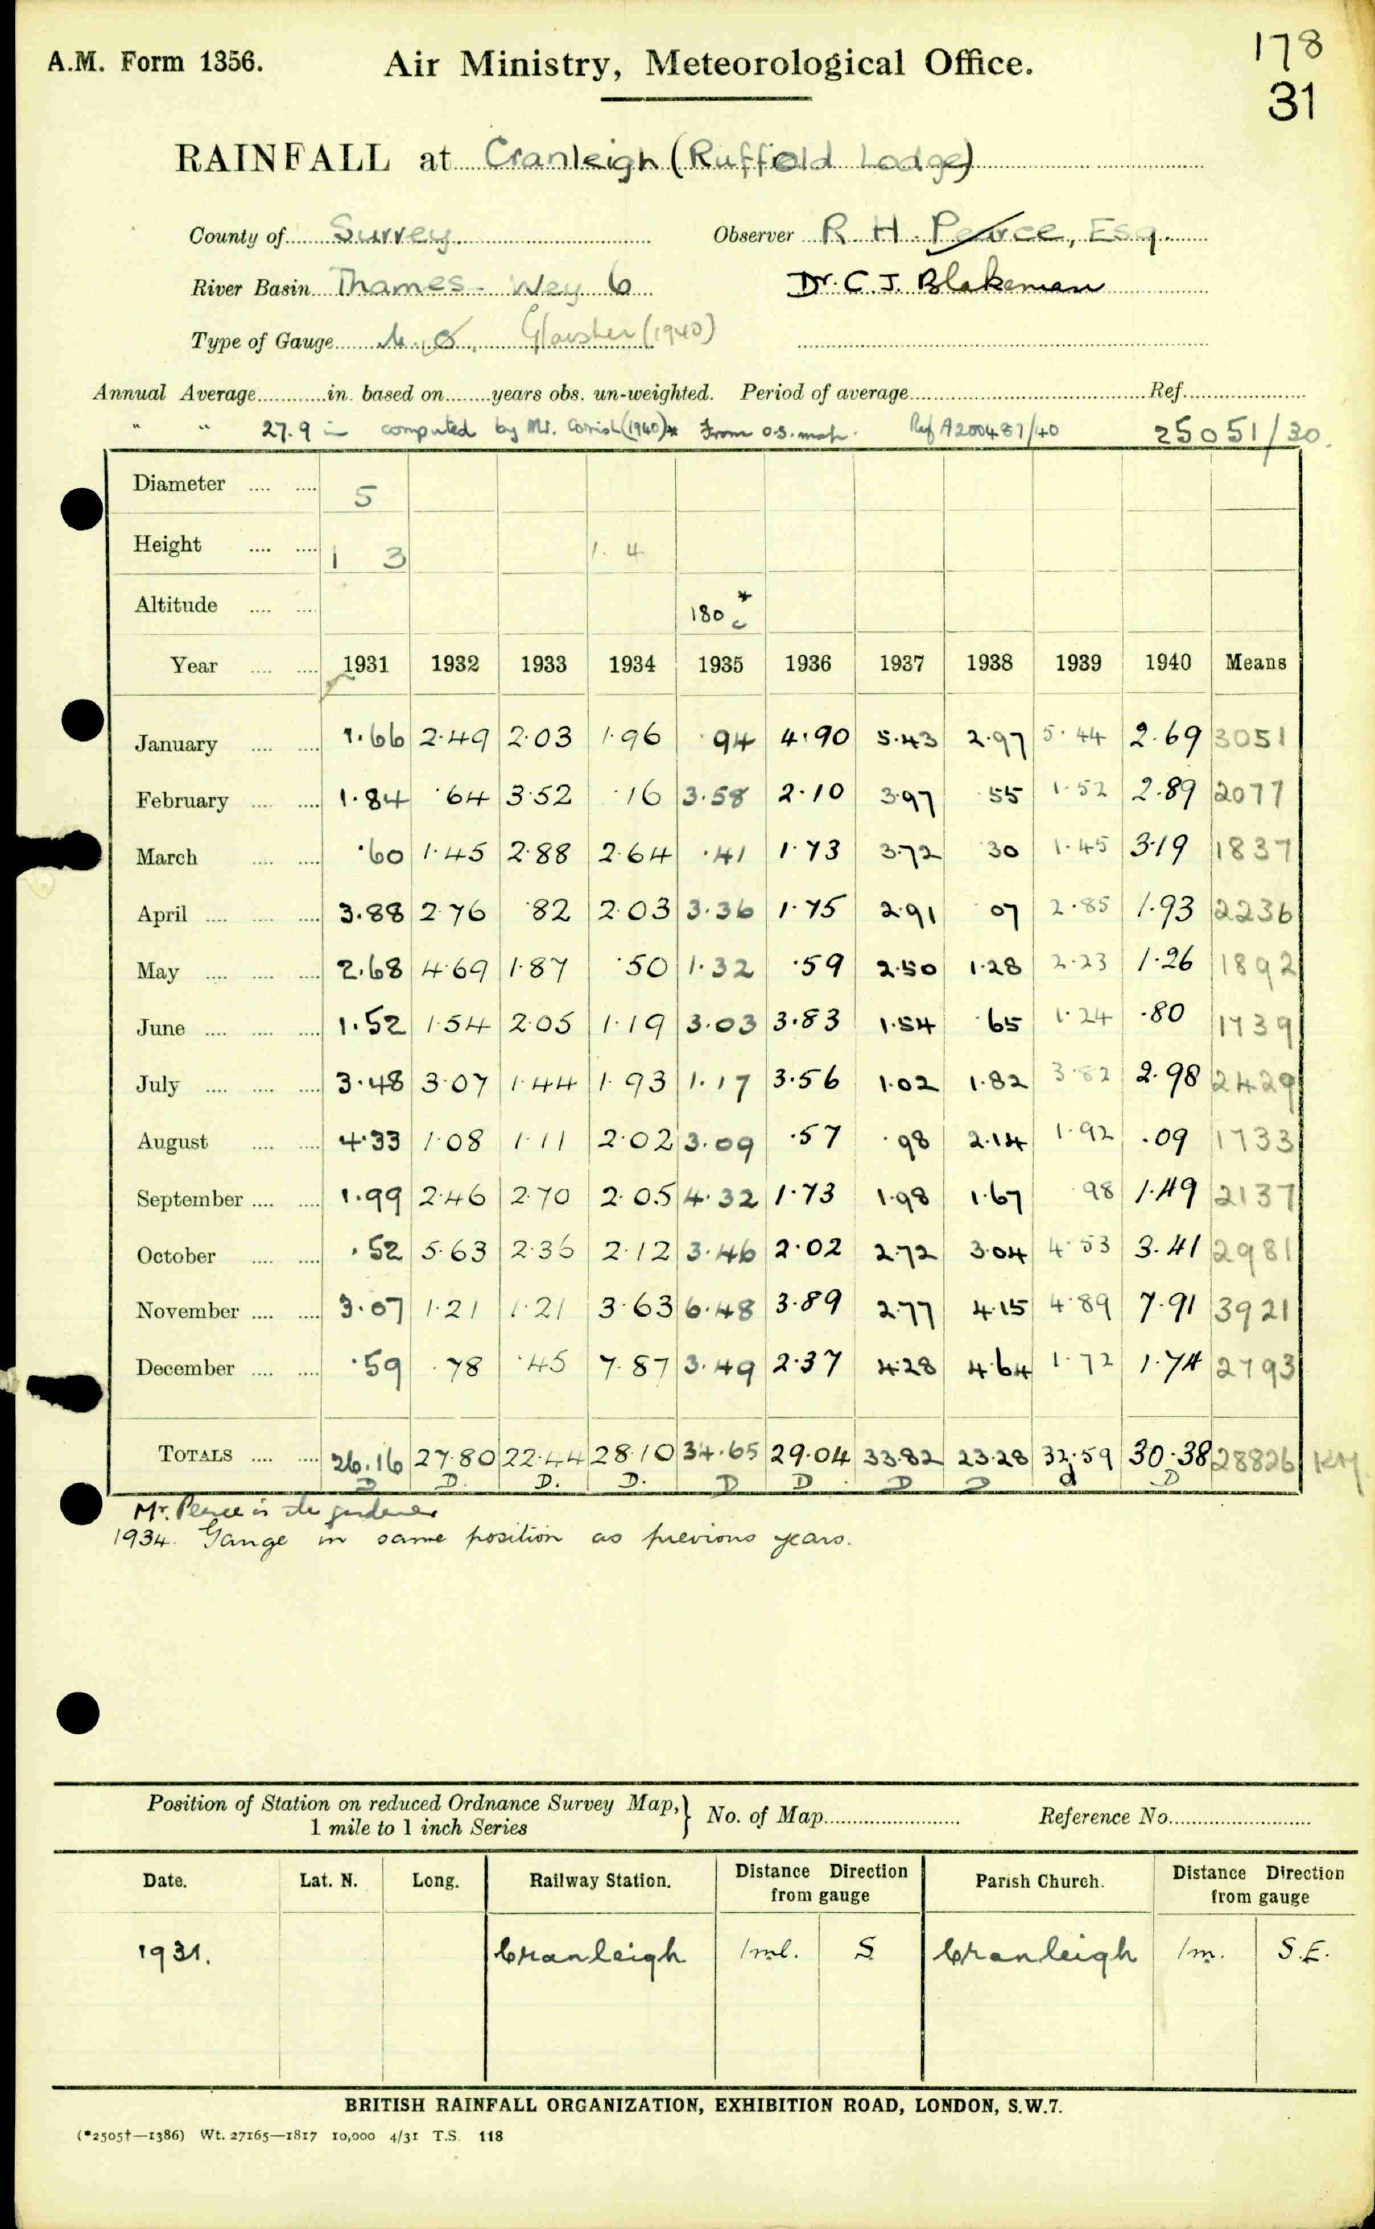 A.M. Form 1356.
Air Ministry, Meteorological Office.
178
31
RAINFALL at Cranleigh (Ruffold Lodge)
County of Surrey Observer R. H. Pearce, Esq.
River Basin Thames - Wey 6 Dr. C J. Blakeman
Type of Gauge M.O. Glaisher (1940)
Annual Average in. based on years obs. un-weighted. Period of average Ref.
" " 27.9 in computed by Mr. (1940) * From O.S. map. Ref A200487/40 25051/30.
Diameter 5
Height 1 3 1. 4
Altitude 180 * c
Year 1931 1932 1933 1934 1935 1936 1937 1938 1939 1940 Means
January 1.66 2.49 2.03 1.96 .94 4.90 5.43 2.97 5.44 2.69 3051
February 1.84 .64 3.52 .16 3.58 2.10 3.97 .55 1.52 2.89 2077
March .60 1.45 2.88 2.64 .41 1.73 3.72 30 1.45 3.19 1837
April 3.88 2.76 .82 2.03 3.36 1.75 2.91 07 2.85 1.93 2236
May 2.68 4.69 1.87 .50 1.32 .59 2.50 1.28 2.23 1.26 1892
June 1.52 1.54 2.05 1.19 3.03 3.83 1.54 .65 1.24 .80 1739
July 3.48 3.07 1.44 1.93 1.17 3.56 1.02 1.82 3.82 2.98 2429
August 4.33 1.08 1.11 2.02 3.09 .57 .98 2.14 1.92 .09 1733
September 1.99 2.46 2.70 2.05 4.32 1.73 1.98 1.67 98 1.49 2137
October .52 5.63 2.36 2.12 3.46 2.02 2.72 3.04 4.53 3.41 2981
November 3.07 1.21 1.21 3.63 6.48 3.89 2.77 4.15 4.89 7.91 3921
December .59 .78 .45 7.87 3.49 2.37 4.28 4.64 1.72 1.74 2793
TOTALS 26.16 27.80 22.44 28.10 34.65 29.04 33.82 23.28 32.59 30.38 28826
D D. D. D. D D. D D d D
Mr. Pearce is the gardener
1934. Gauge in same position as previous years.
Position of Station on reduced Ordnance Survey Map, 1 mile to 1 inch Series } No. of Map Reference No.
Date. Lat. N. Long. Railway Station. Distance Direction from gauge Parish Church. Distance Direction from gauge
1931. Cranleigh 1ml. S Cranleigh 1m. S.E.
BRITISH RAINFALL ORGANIZATION, EXHIBITION ROAD, LONDON, S.W.7.
(*2505†—1386) Wt. 27165—1817 10,000 4/31 T.S. 118